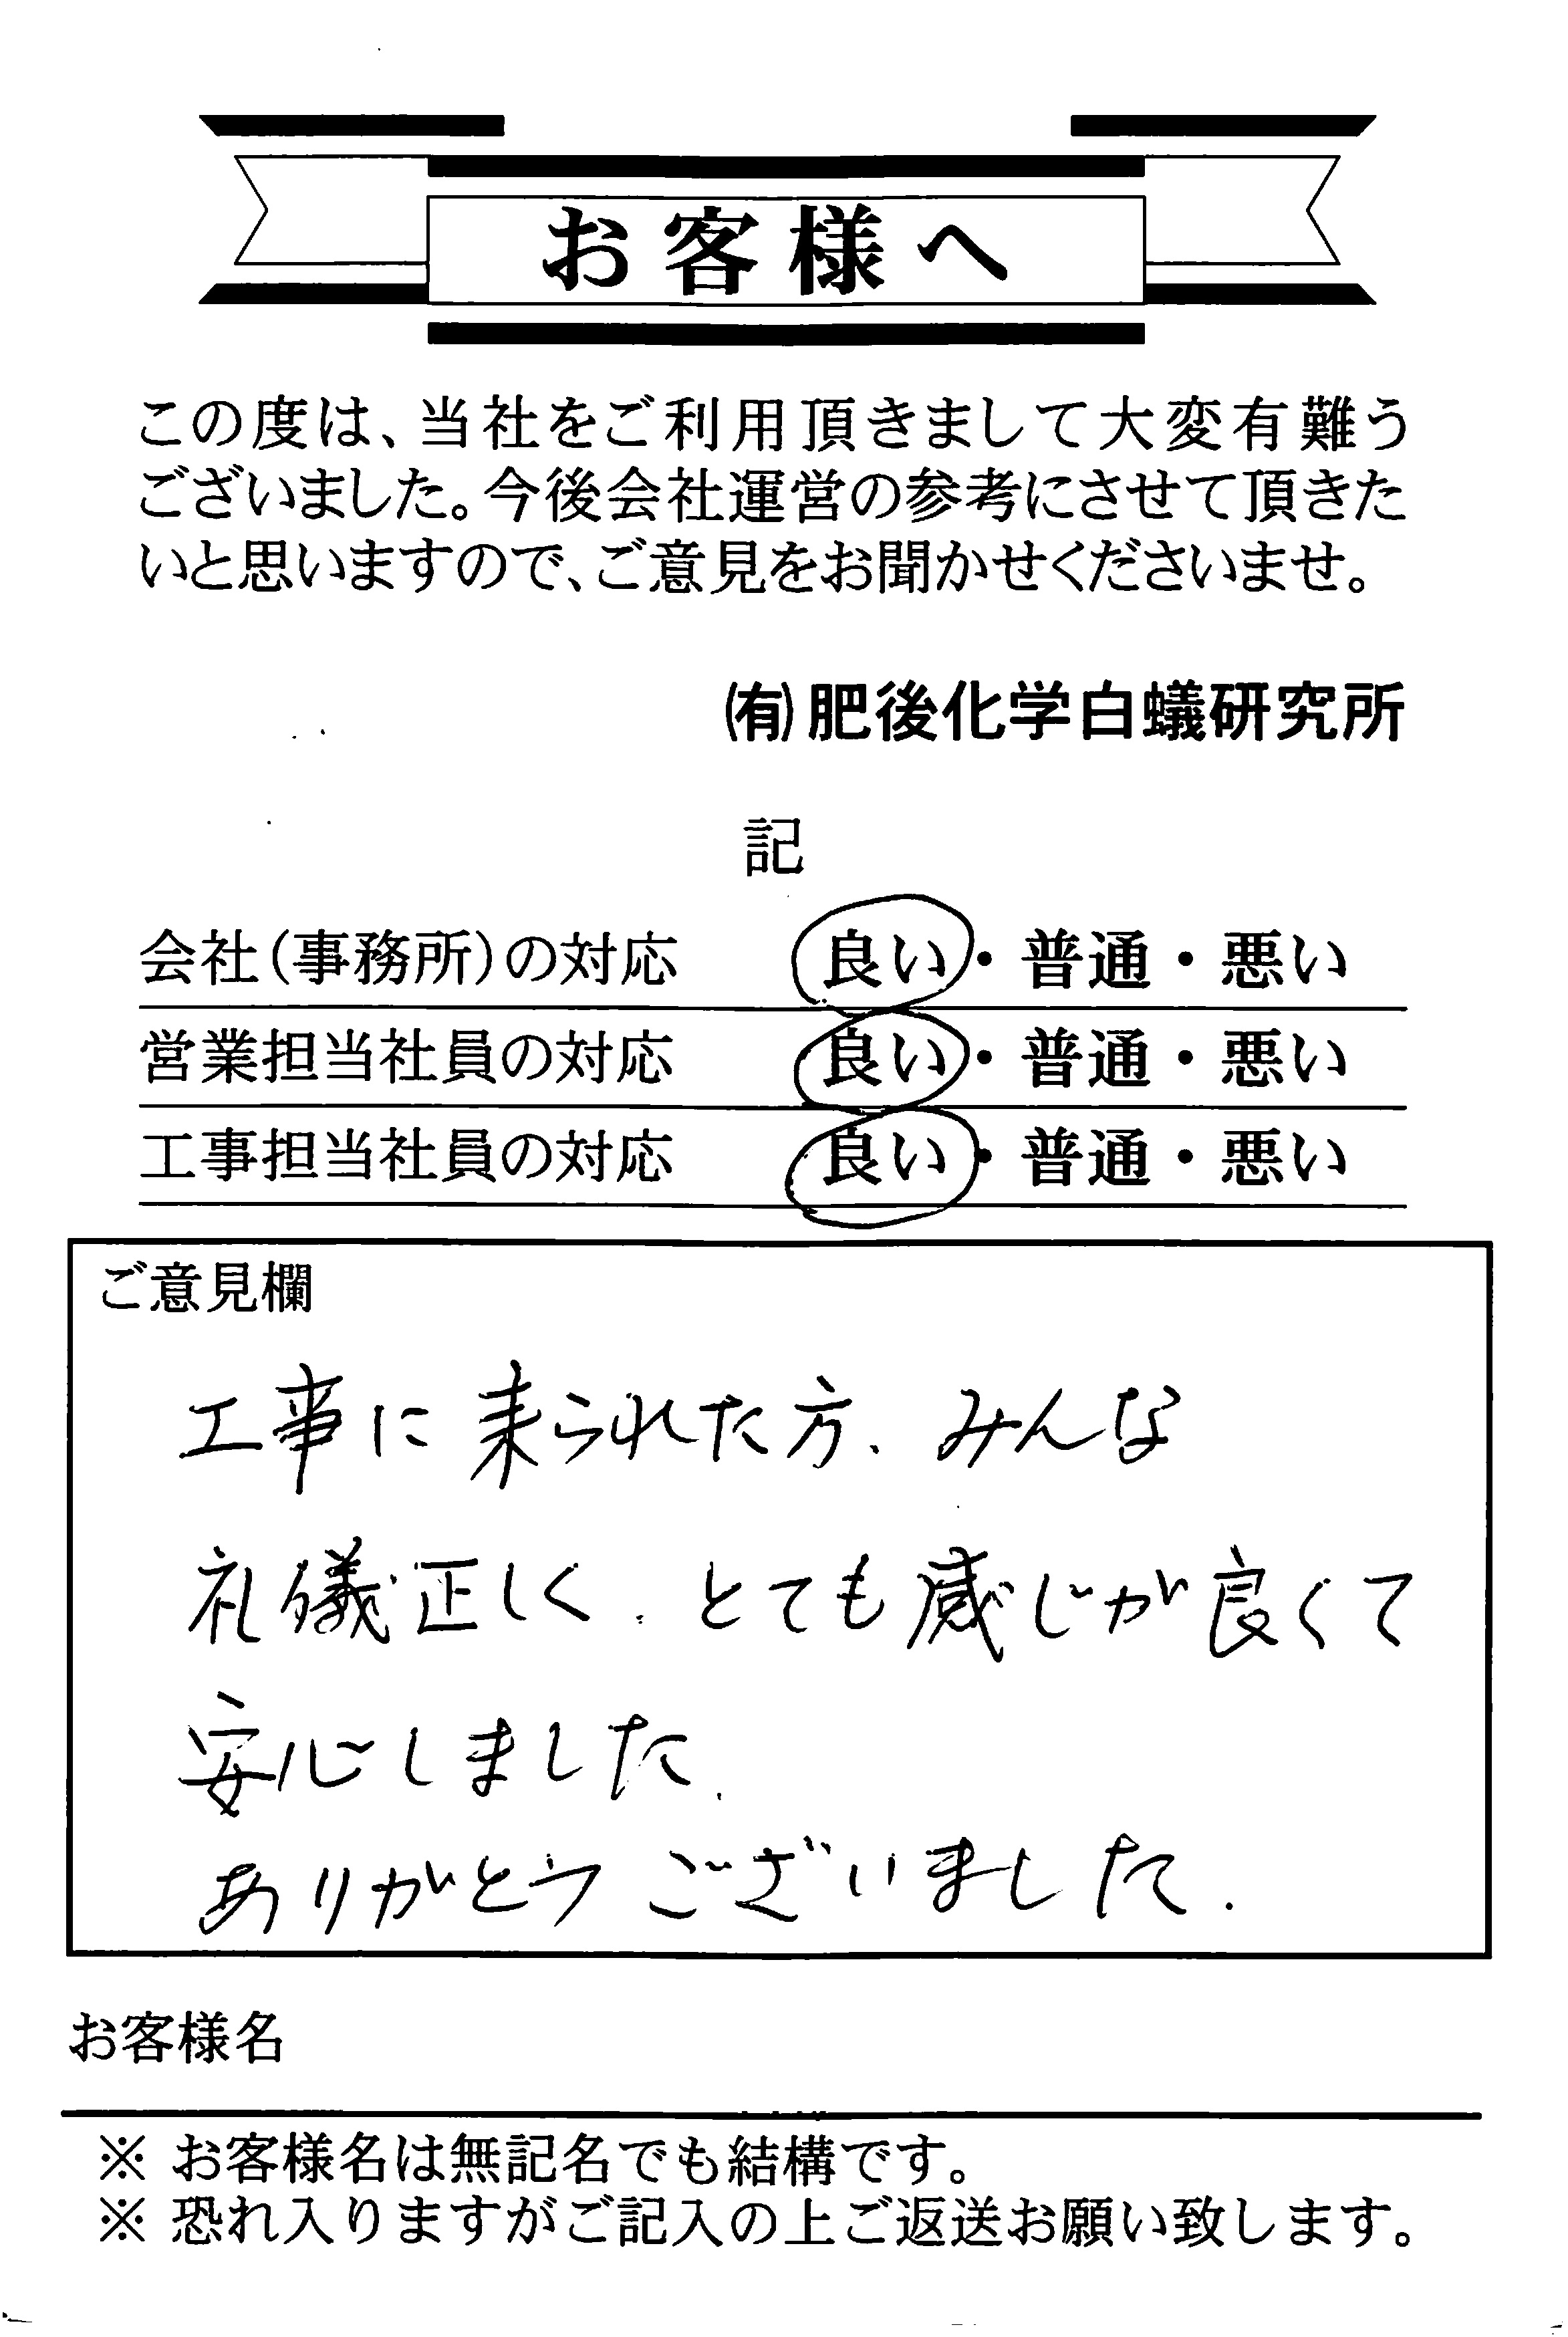 お客様へ
この度は、当社をご利用頂きまして大変有難う
ございました。今後会社運営の参考にさせて頂きた
いと思いますので、ご意見をお聞かせくださいませ。
㈲肥後化学白蟻研究所
記
会社(事務所)の対応 良い・普通・悪い
営業担当社員の対応 良い・普通・悪い
工事担当社員の対応 良い・普通・悪い
ご意見欄
工事に来られた方、みんな
礼儀正しく、とても感じが良くて
安心しました.
ありがとうございました.
お客様名
※ お客様名は無記名でも結構です。
※ 恐れ入りますがご記入の上ご返送お願い致します。